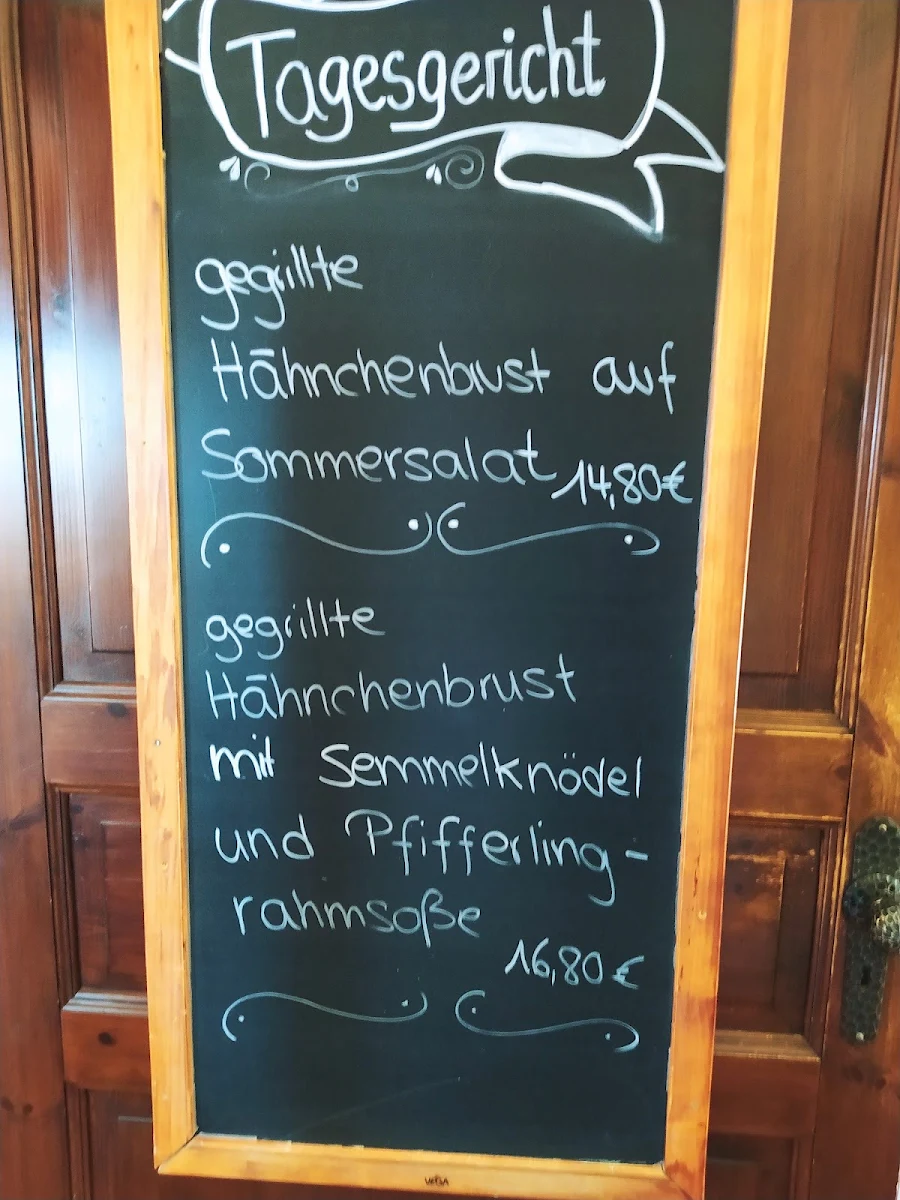 Tagesgericht
gegrillte
Hähnchenbrust auf
Sommersalat 14,80€
gegrillte
Hähnchenbrust
mit Semmelknödel
und Pfifferling-
rahmsoße
16,80€
VEGA